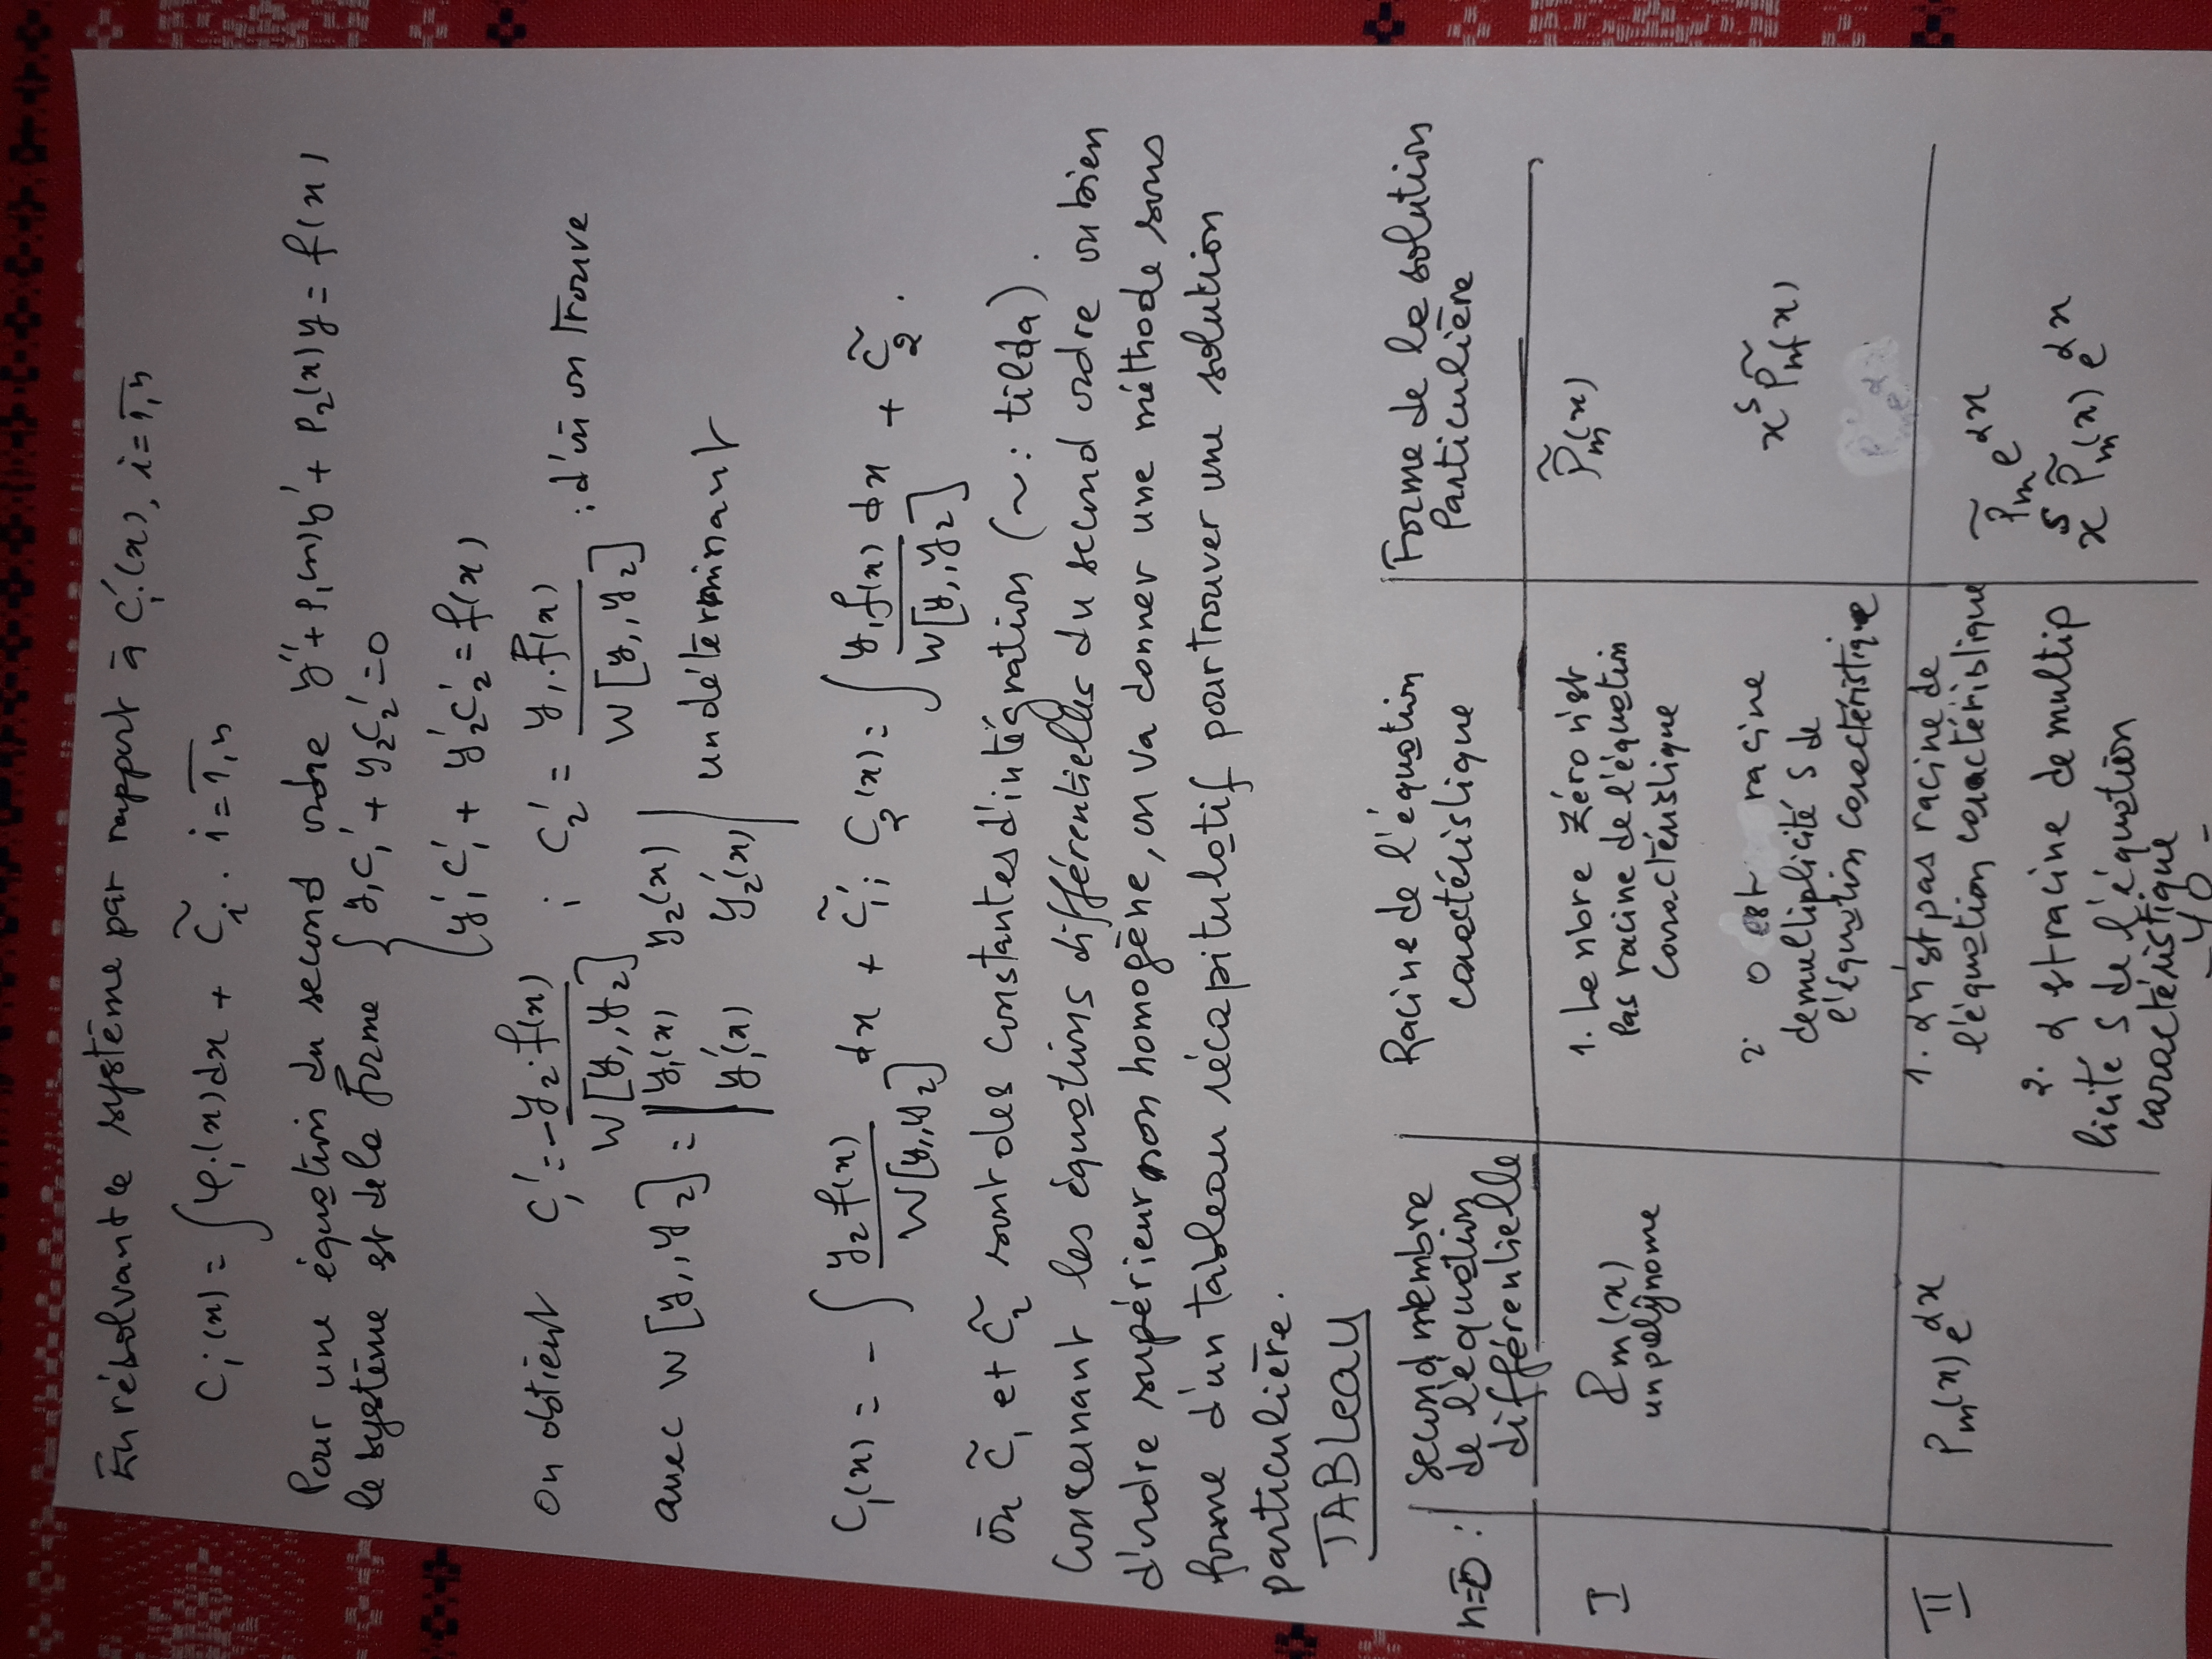 En résolvant le système par rapport à C'ᵢ(x), i = 1,n
Cᵢ(x) = ∫ φᵢ(x)dx + C̃ᵢ . i = 1,n
Pour une équation du second ordre y'' + P₁(x)y' + P₂(x)y = f(x)
le système est de la forme { y₁C'₁ + y₂C'₂ = 0
y'₁C'₁ + y'₂C'₂ = f(x)
On obtient C'₁ = -y₂.f(x) / W[y₁,y₂] ; C'₂ = y₁.f(x) / W[y₁,y₂] : d'où on trouve
avec W[y₁,y₂] = | y₁(x) y₂(x) |
| y'₁(x) y'₂(x) | un déterminant
C₁(x) = - ∫ y₂ f(x) / W[y₁,y₂] dx + C̃₁ ; C₂(x) = ∫ y₁f(x) dx / W[y₁,y₂] + C̃₂ .
où C̃₁ et C̃₂ sont des constantes d'intégration (~ : tilda) .
Concernant les équations différentielles du second ordre ou bien
d'ordre supérieur non homogène, on va donner une méthode sous
forme d'un tableau récapitulatif pour trouver une solution
particulière.
TABLEAU
n=0 : second membre de l'équation différentielle
Racine de l'équation caractéristique
Forme de la solution Particulière
I
Pm(x)
un polynome
1. Le nbre Zéro n'est
pas racine de l'équation
caractéristique
P̃m(x)
2. 0 est racine
de multiplicité s de
l'équation caractéristique
xˢ P̃m(x)
II
Pm(x) e^αx
1. α n'est pas racine de
l'équation caractéristique
P̃m e^αx
2. α est racine de multip
licité s de l'équation
caractéristique
xˢ P̃m(x) e^αx